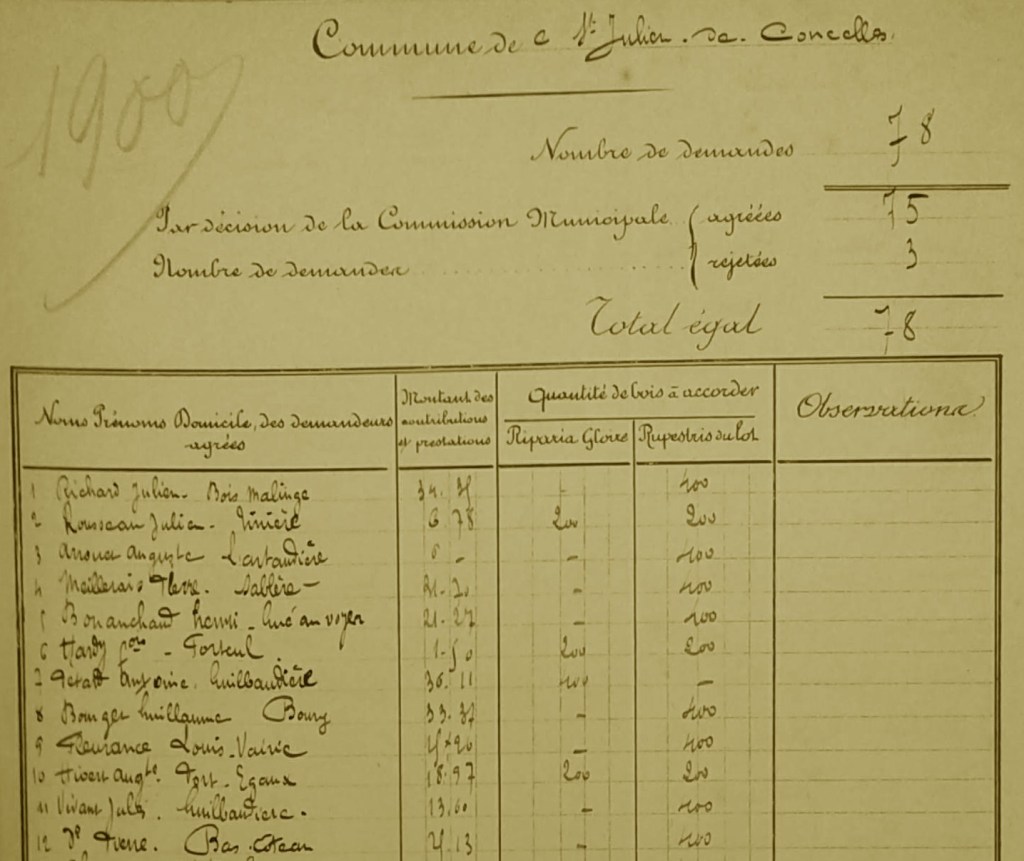 Commune de St Julien. de. Concelles.
1900
Nombre de demandes 78
Par décision de la Commission Municipale ( agréées 75
Nombre de demandes .......... rejetées 3
Total égal 78
Noms Prénoms Domicile, des demandeurs agrées
Montant des contributions et prestations
Quantité de bois à accorder
Riparia Gloire
Rupestris du lot
Observations
1 Richard Julien - Bois Malinge 34. - 400
2 Rousseau Julien - 6 78 200 200
3 Auguste - - 400
4 Meillerais Pierre. Sablère - 21. 20 - 400
5 Bonanchaud henri - Gué au voyer 21. 27 - 400
6 Hardy - Porteul 1. 50 200 200
7 Antoine. Guilbaudière 36. 11 400 -
8 Bouyer Guillaume Bourg 33. 37 - 400
9 Fleurance Louis - - 400
10 Hivert Augte. Port - Egaux 18. 97 200 200
11 Vivant Jules. Guilbaudiere. 13. 60 - 400
12 Pierre. Bas. coteau 13 - 400